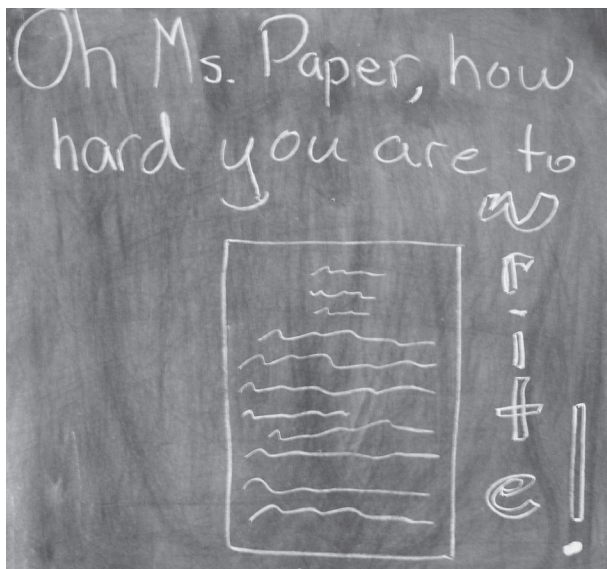 Oh Ms. Paper, how
hard you are to
write!